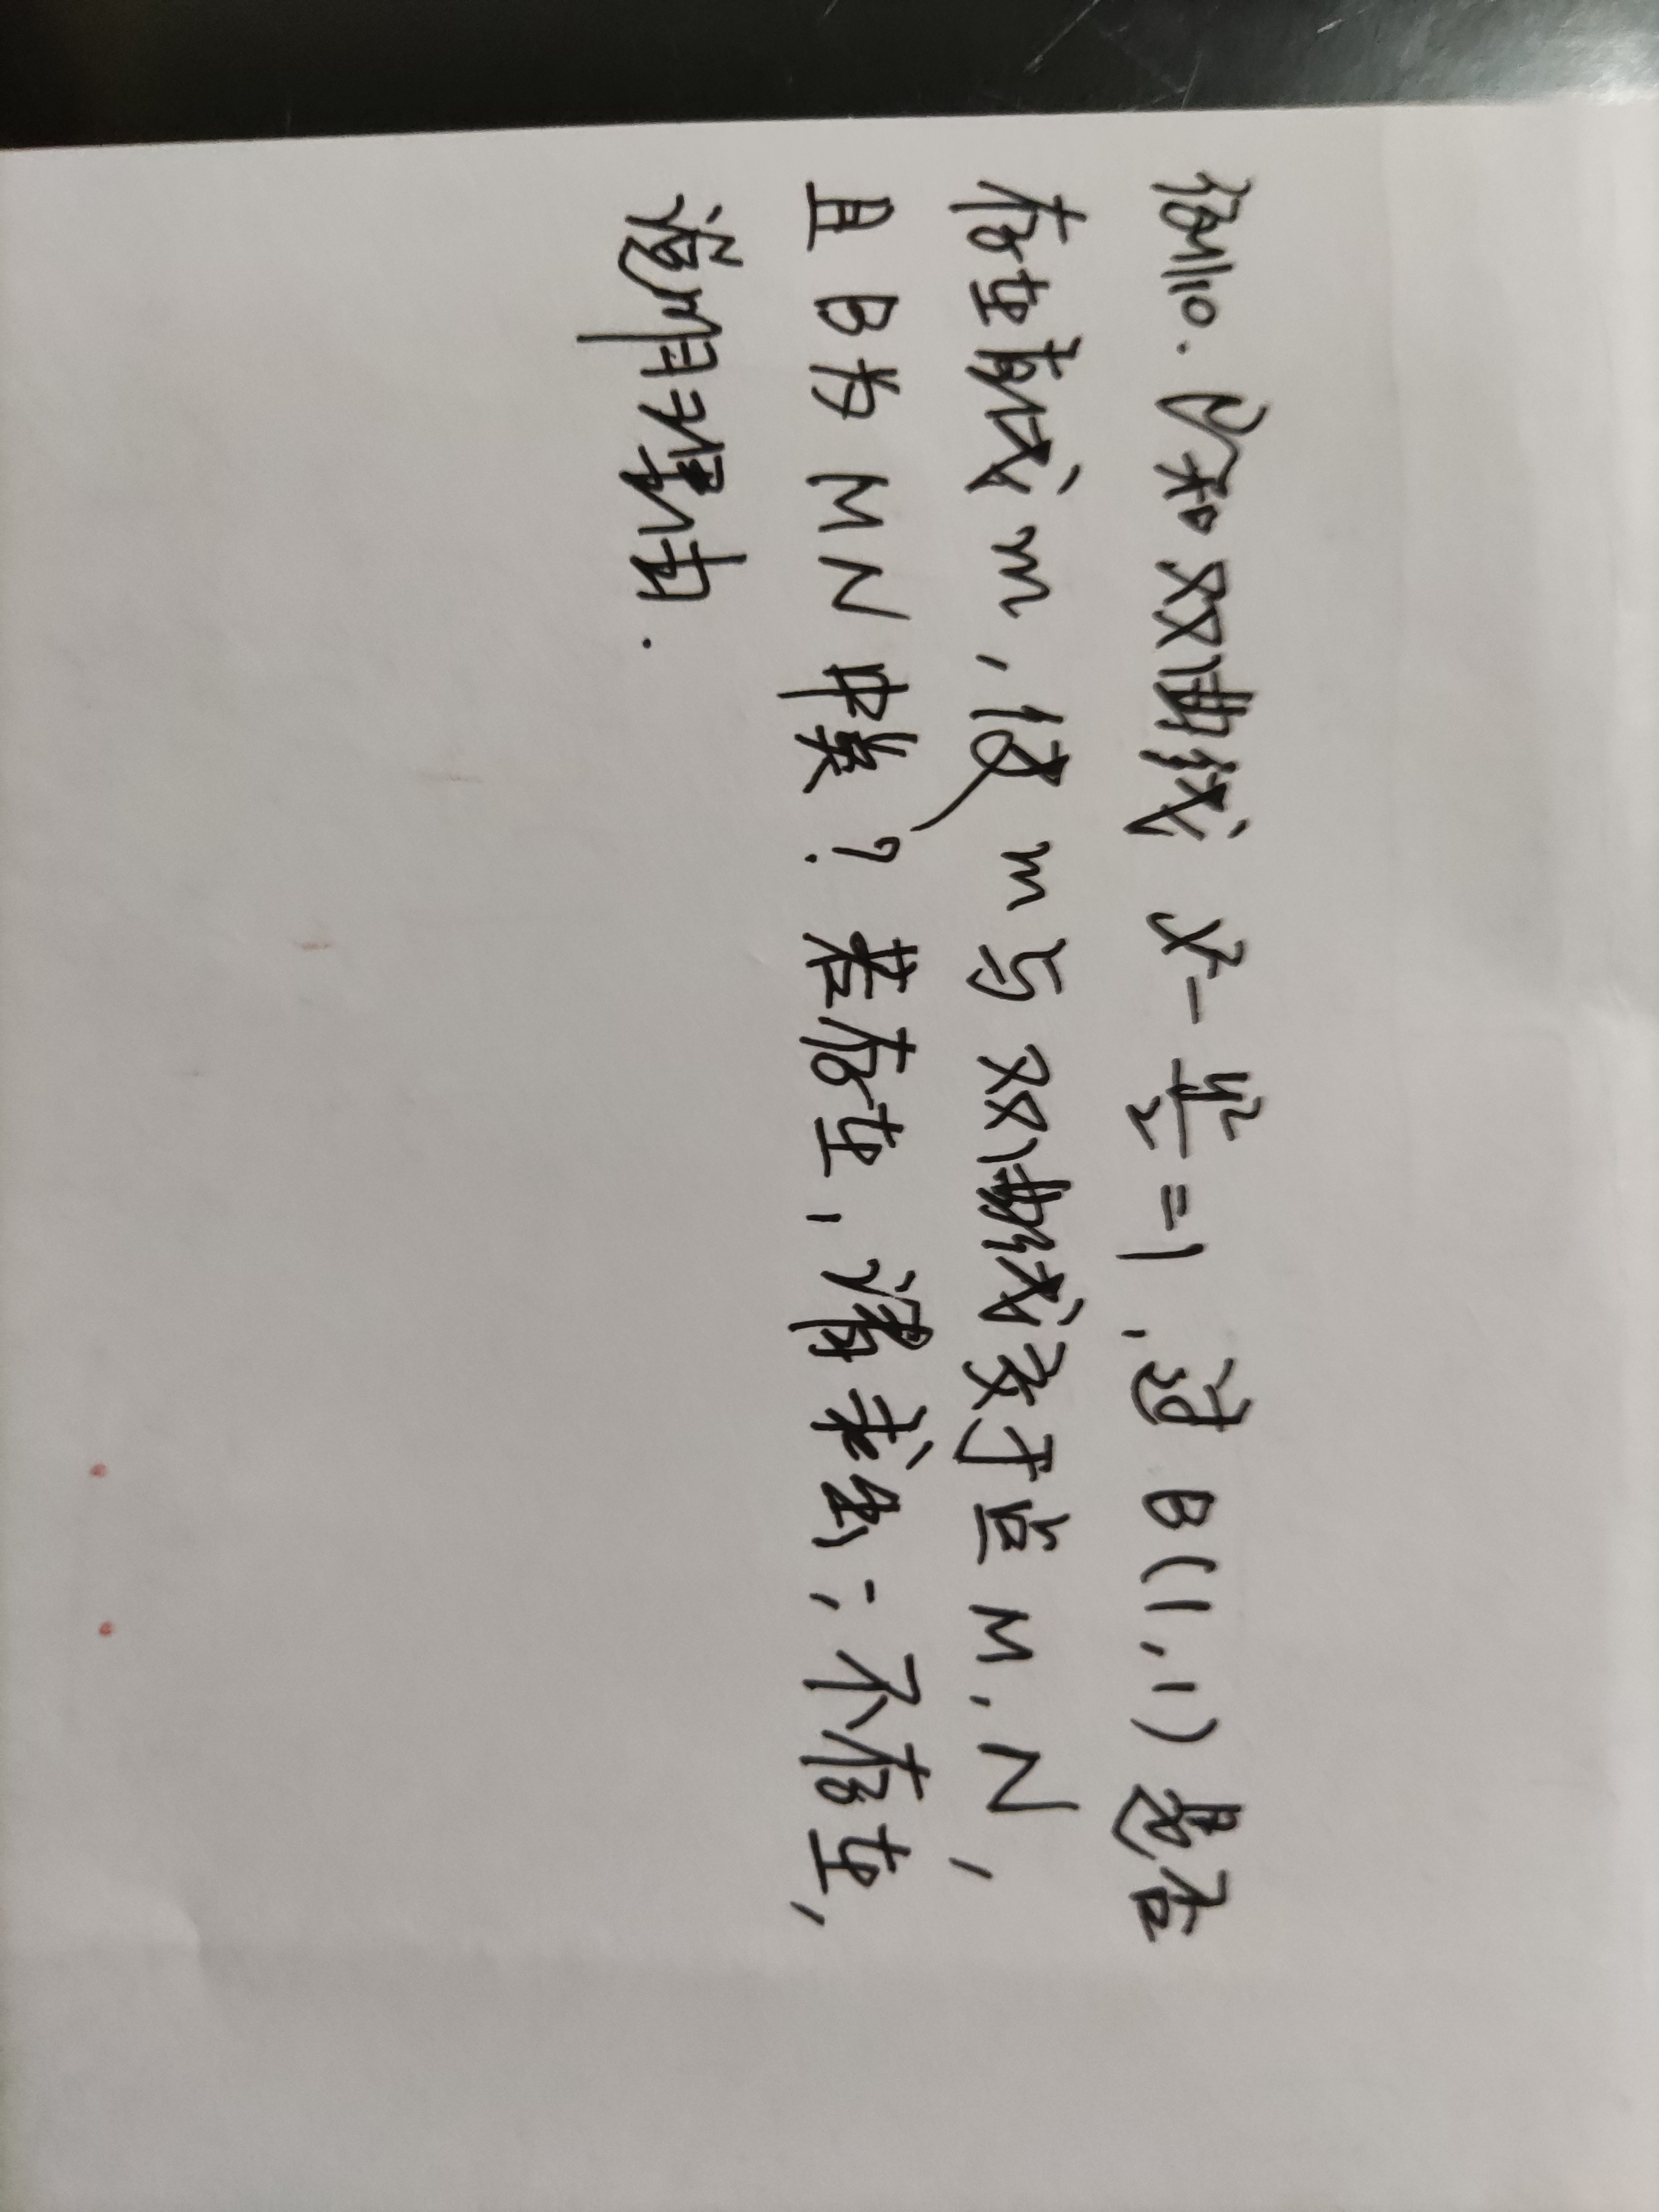 例10. 已知双曲线 x²-y²/2=1,过 B(1,1)是否
存在直线 m,使 m 与 双曲线交于点 M,N,
且 B为 MN 中点?若存在,请求出;不存在,
说明理由.